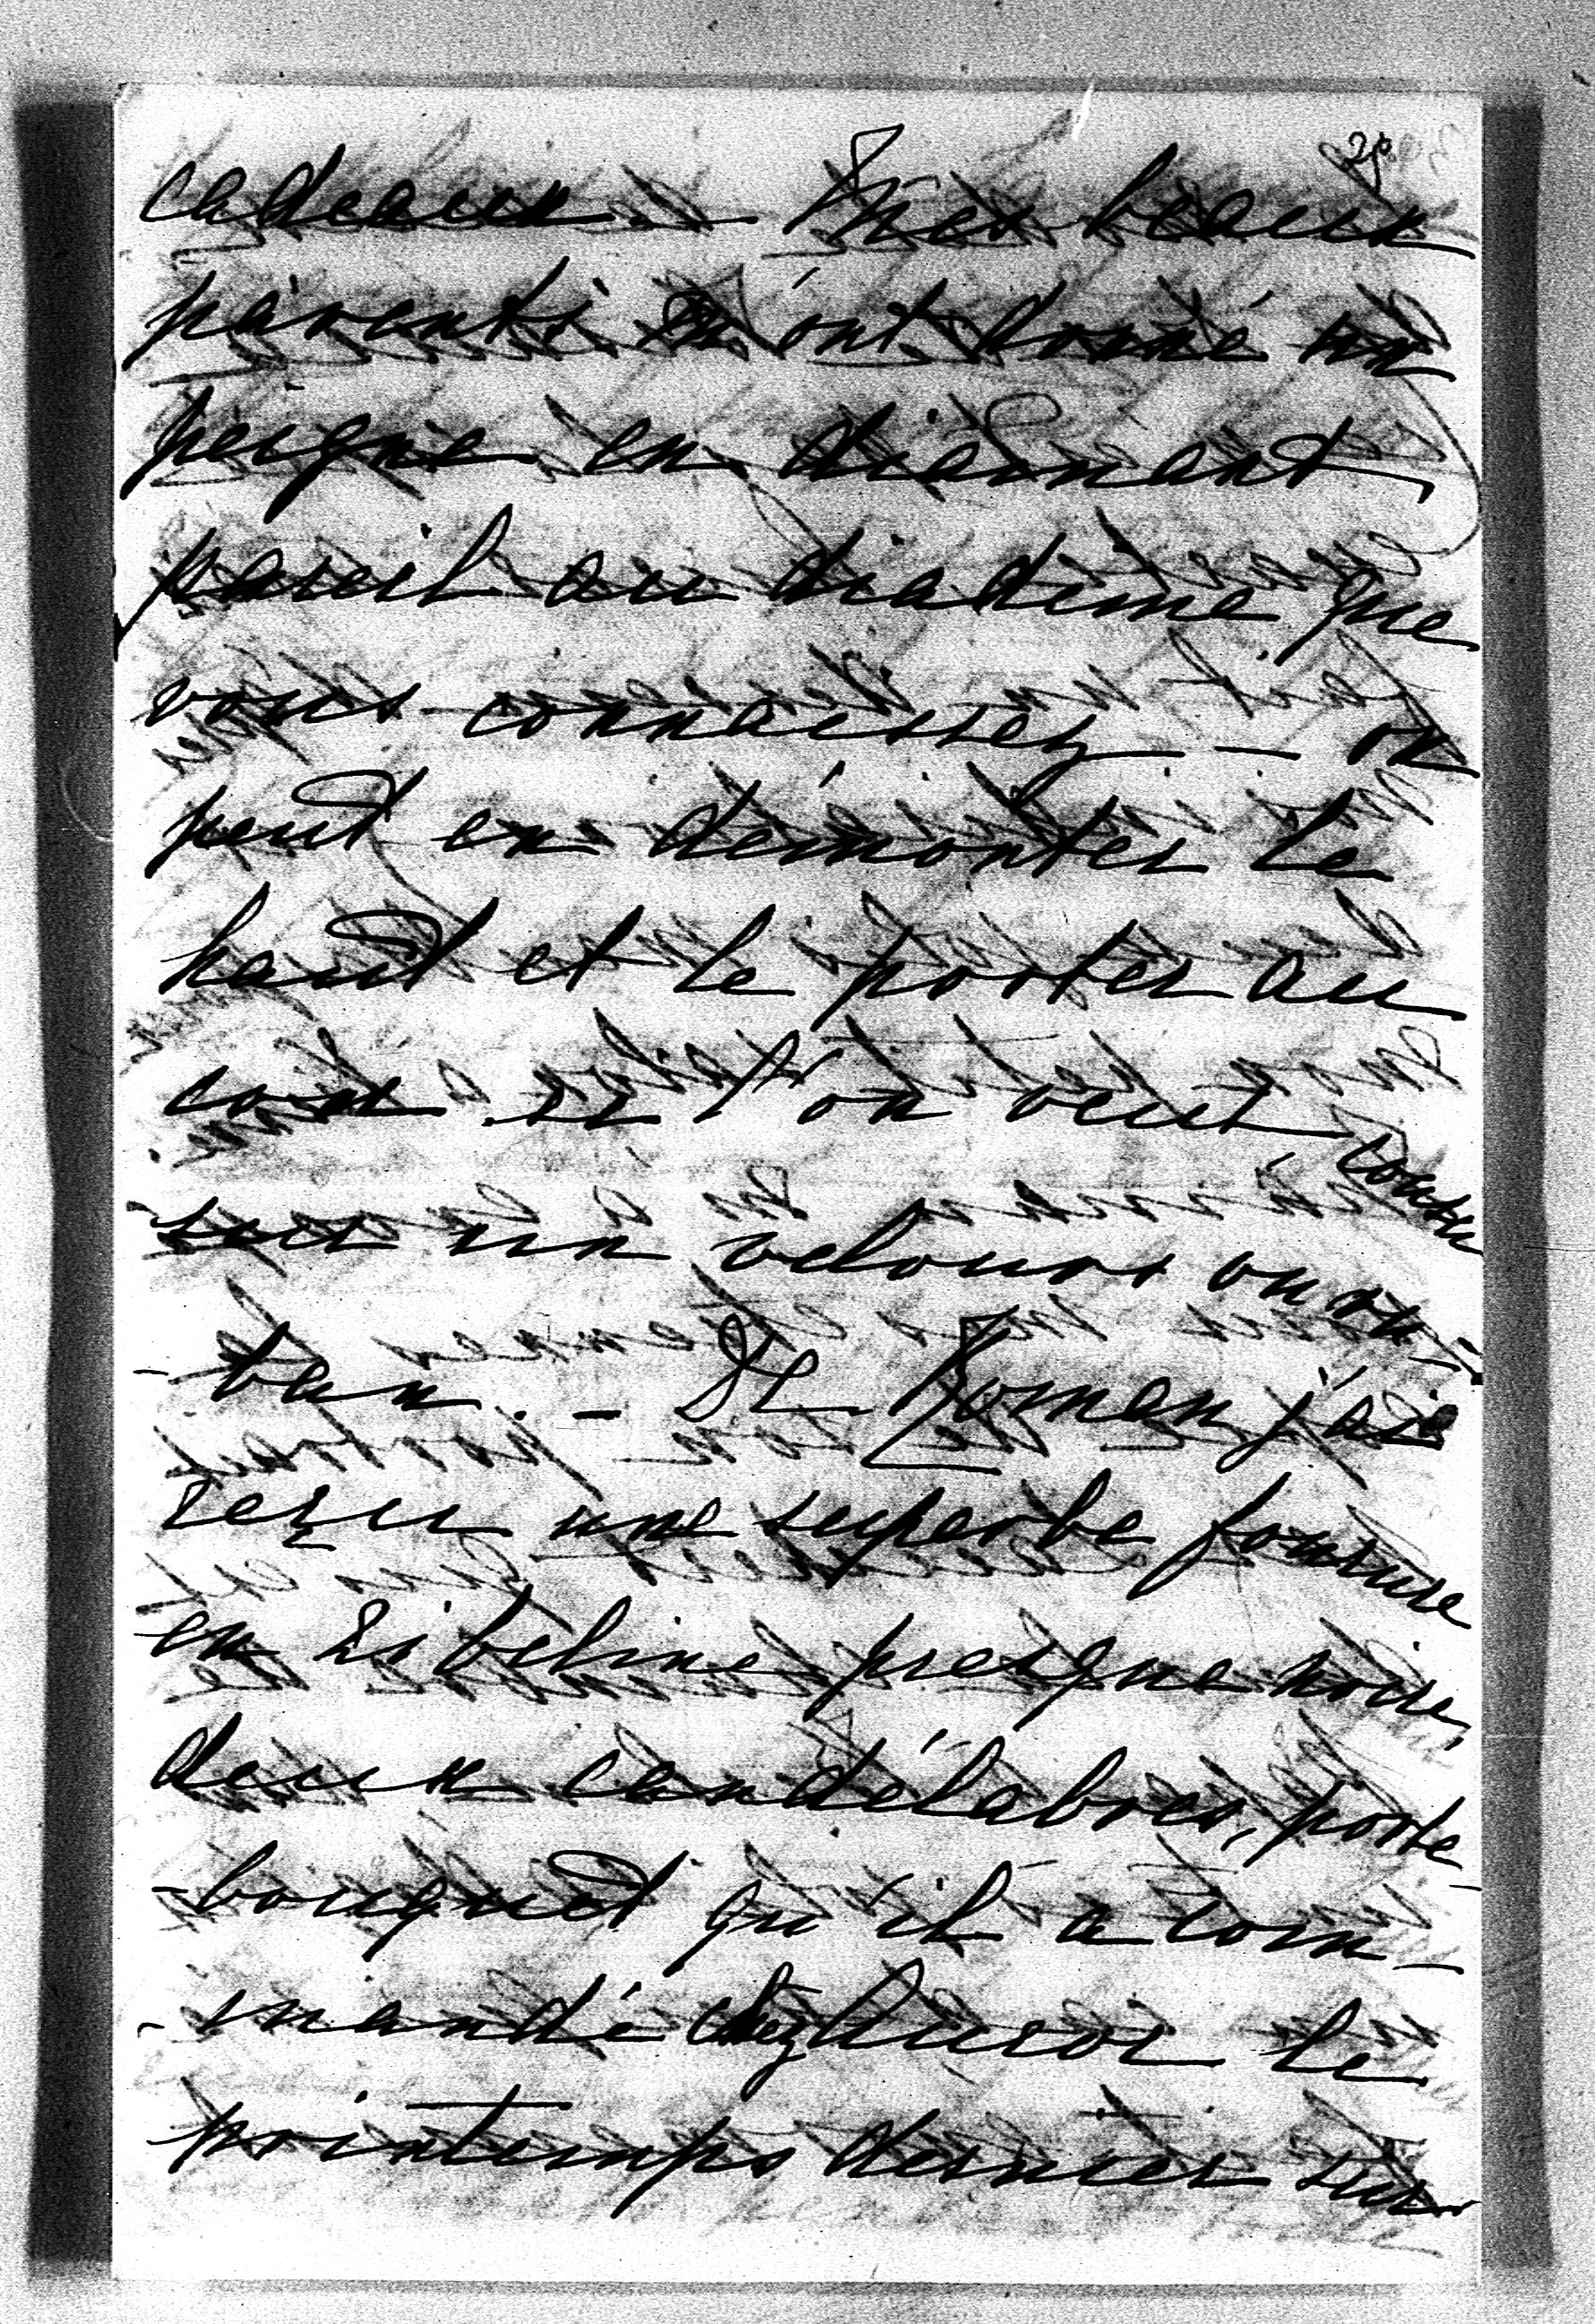 cadeaux. — Mes beaux
parents m'ont donné un
peigne en diamant
pareil au diadème que
vous connaissez — on
peut en démonter le
haut et le porter au
cou si l'on veut cousu
sur un velours ou ru-
-ban. — De Roman j'ai
reçu une superbe fourrure
en zibeline presque noire,
deux candélabres, porte-
-bouquet qu'il a com-
-mandé chez Aucoc le
printemps dernier sur